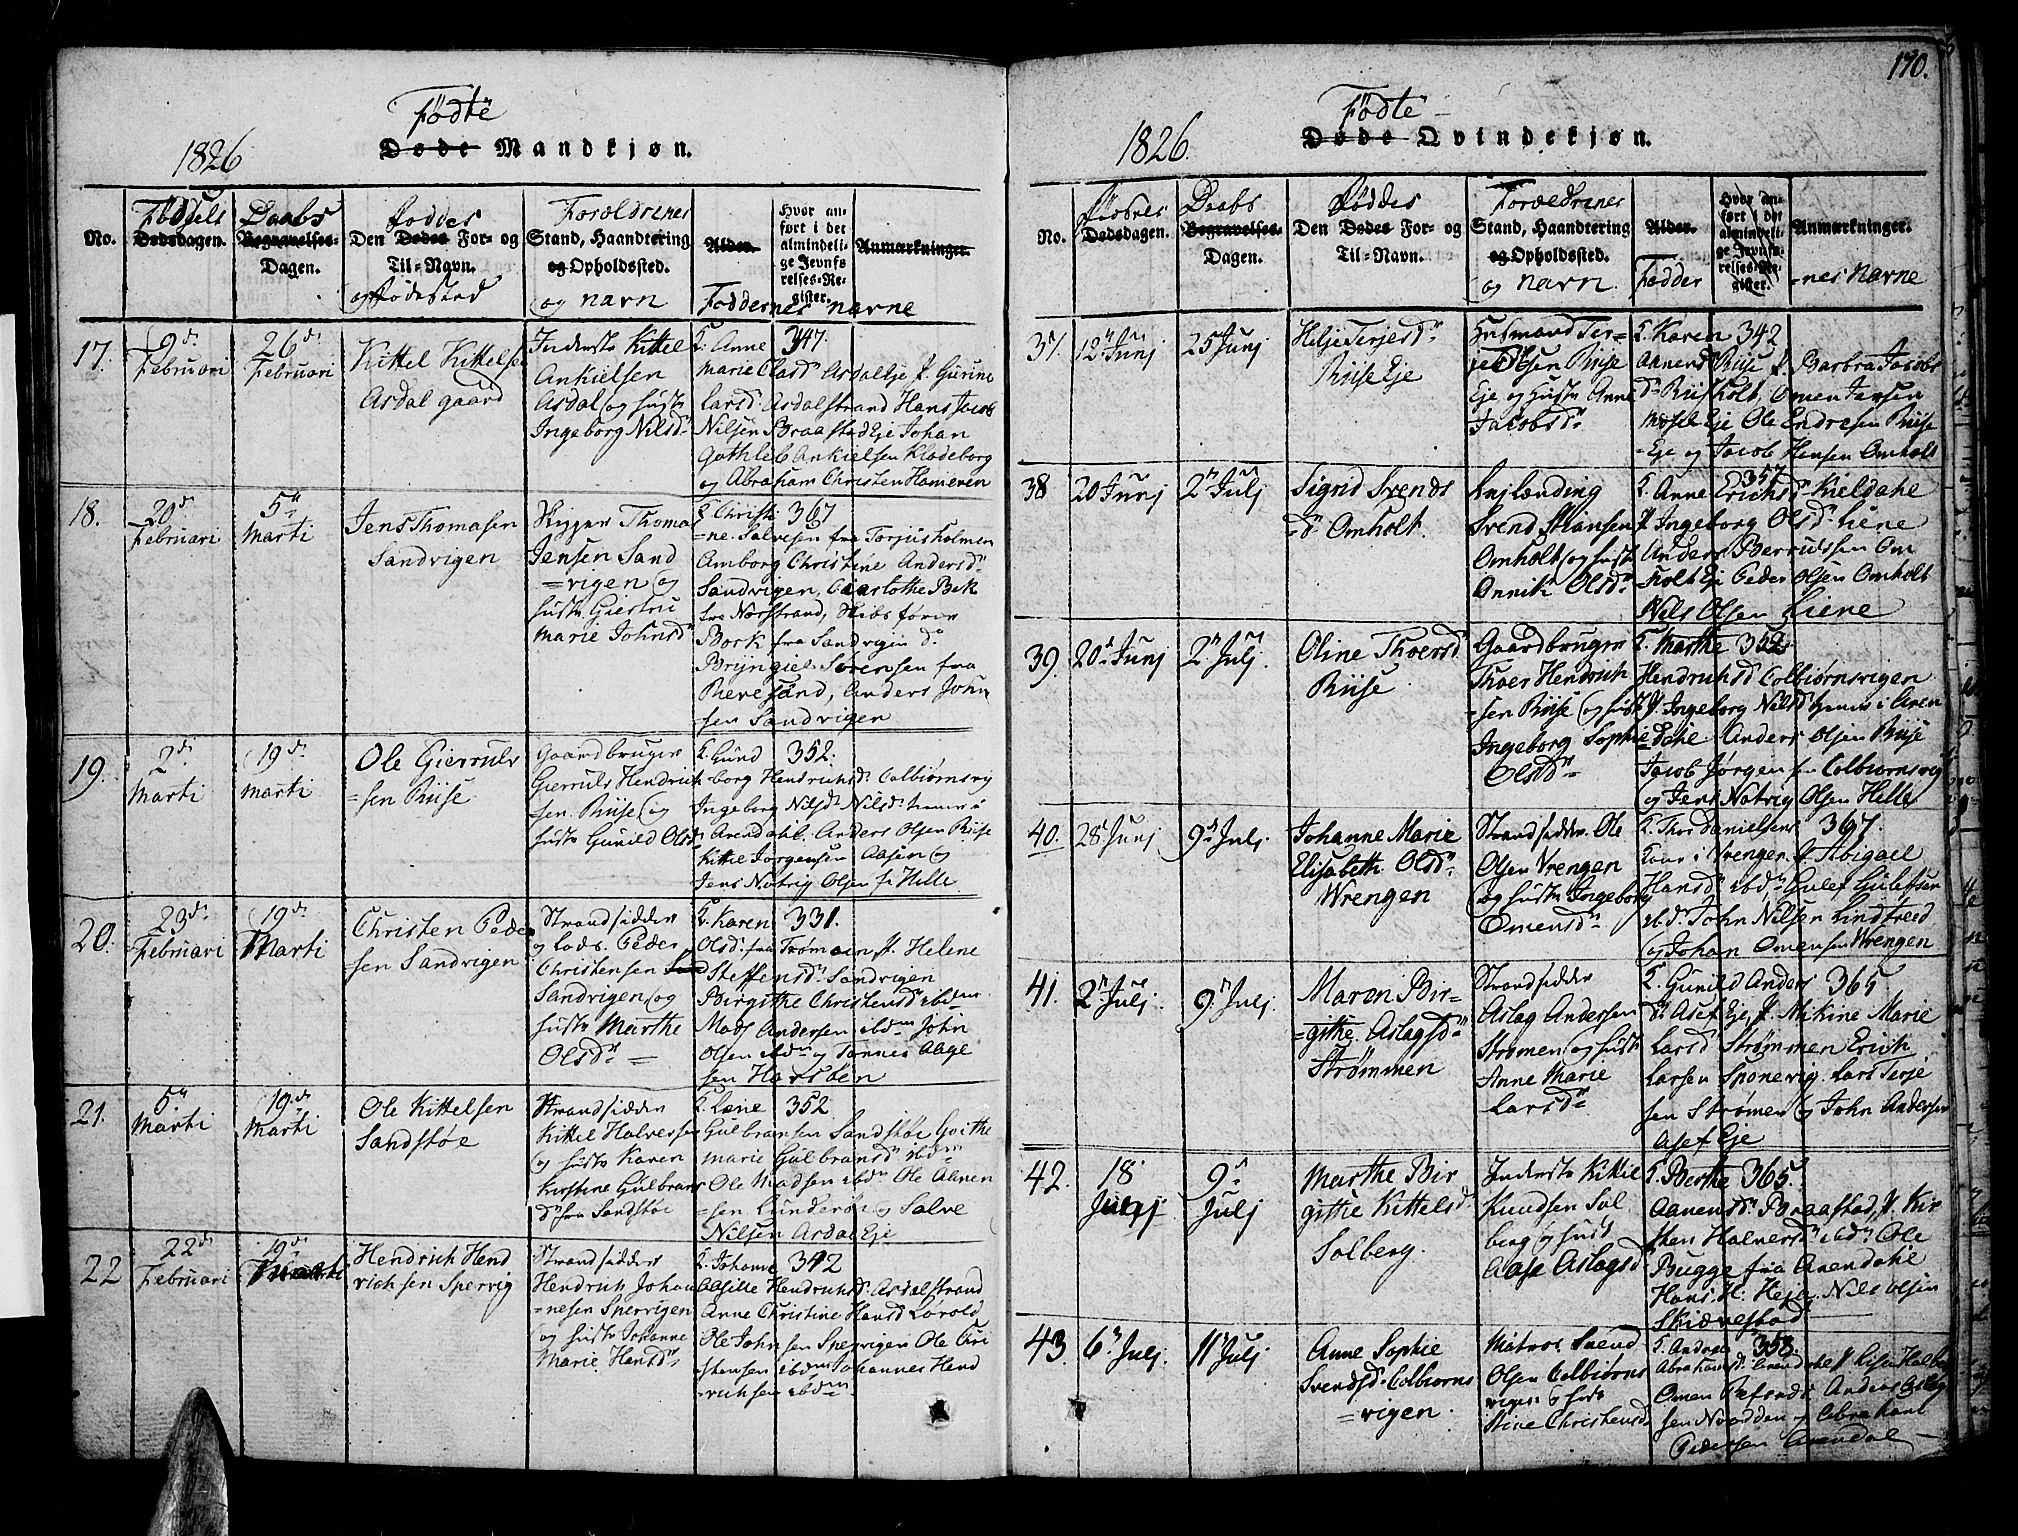 170.
1826
Födte
Døde Mandkjøn.
No.
Fødsels
Dødsdagen.
Daabs
Begravelses-
Dagen.
Føddes
Den Dødes For- og
Til-Navn.
og Fødestad
Foreldrenes
Stand, Haandtering
og Opholdssted.
og navn
Alder.
Hvor an-
ført i det
almindeli-
ge Jevnfø-
relses-Re-
gister.
Anmærkninger.
Faddernes navne
17.
9de
Februari
26de
Februari
Kittel Kittelsen
Asdal gaard
Inderste Kittel
Ankielsen
Asdal og hustr
Ingeborg Nilsd
F. Anne 347.
Marie Olasd. Asdal Eje P. Gurine
Larsd. Asdalstrand Hans Jacob
Nilsen Braastad Eje Johan
Gothleb Ankielsen Klodeborg
og Abraham Christen
18.
20de
Februari
5te
Marti
Jens Thomasen
Sandvigen
Skipper Thomas
Jensen Sand
=vigen og
hustr Giertru
Marie Johnsd
F. Christi 367
=ne Salvesen fra Torjusholmen
Amborg Christine Andersd=
Sandvigen, Charlothe Bek
fra Norstrand, Skibsfører
Bork fra Sandvigen
Brÿngiel Sørensen fra
Revesand, Anders John
sen Sandvigen
19.
2de
Marti
19de
Marti
Ole Gierruls
=sen Riise
Gaardbruger
Gierruls Hendrich
sen Riise og
hustr Gunild Olsd
F. Gund 352.
-borg Hendrichsd. Colbiørnsvig
Ingeborg Nilsd Nilsd hiemme i
Arendahl. Anders Olsen Riise
Kittel Jørgensen Aasen og
Jens Notvig Olsen fr Hille
20.
23de
Februari
19de
Marti
Christen Peder
sen Sandvigen
Strandsidder
og Lods. Peder
Christensen
Sandvigen og
hustr Marthe
Olsd
F. Karen 331.
Olsd. fra Tromøen P. Helene
Steffensd. Sandvigen
Birgithe Christensd ibdm
Mads Andersen ibdm John
Olsen ibdm og Tønnes Aage
sen Havsøen
21.
5te
Marti
19de
Marti
Ole Kittelsen
Sandstøe
Strandsidder
Kittel Halversen
og hustr Karen
Kirstine Gulbrans
d fra Sandstøe
F. Lene 352
Gulbransen Sandstøe Goithe
Marie Gulbransd ibdm
Ole Madsen ibdm Ole Aanen
=sen Lunderøe og Salve
Nilsen Asdal Eje
22
22de
Februari
19de
Marti
Hendrich Hend
richsen Spervig
Strandsidder
Hendrich Johan
=nesen Spervigen
og hustr Johanne
Marie Hansd
F. Johanne 342
Aasille Hendrichsd. Asdalstrand
Anne Christine Hansd Lorold
Ole Johnsen Spervigen Ole Cri
stensen ibdm Johannes Hend
richsen ibdm
1826.
Födte
Døde Qvindekjøn.
No.
Fødsels
Dødsdagen.
Daabs
Begravelses-
Dagen.
Føddes
Den Dødes For- og
Til-Navn.
Forældrenes
Stand, Haandtering
og Opholdssted.
og navn.
Alder.
Fadder
Hvor an-
ført i det
almindeli-
ge Jevnfø-
relses-Re-
gister.
Anmærkninger.
-nes navne
37.
12te Junj
25 Junj
Helje Terjesd
Riise Eje
Husmand Ter-
je Olsen Riise
Eje og hustr Anne
Jacobsd
F. Karen 342
Aanensd Riise P. Barbra Jacobs
d. Riisholt, Omen Jansen
Mosel Eje Ole Endresen Riise
=Eje og Jacob Hensen Omholt
38
20 Junj
2 Julj
Sigrid Svends
=d. Omholt.
Svend Stiansen
Omholt og hustr
Annich Olsd
F. Anne Erichsd. Kieldahe 357
P. Ingeborg Olsd Liene
Anders Berrulssen Om
holt Eje Peder Olsen Omholt
Nils Olsen Liene
39.
20 Junj
2 Julj.
Oline Thoersd
Riise
Gaardbruger
Thoer Hendrich
=sen Riise og hustr
Ingeborg Sophie
Olsd
F. Marthe 352
Hendrichsd Colbiørnsvigen
P. Ingeborg Nilsd hiemme i Aren
=dahl Anders Olsen Riise
Jacob Jørgen fr Colbiørnsvig
og Jens Notvig Olsen Hille
40.
28 Junj
9 Julj.
Johanne Marie
Elisabeth Olsd
Wrengen
Strandsidder. Ole
Olsen Vrengen
og hustr Ingeborg
Omensd
F. Thor Danielsens 367.
Kaar i Vrengen P. Abigael
Hansd ibdm Gulef Gulefsen
ibd. John Nilsen Lindtveed
og Johan Omensen Wrengen
41.
2 Julj.
9 Julj
Maren Bir=
=gitthe Aslagsd
Strømmen
Strandsidder
Aslag Andersen
Strømen og hustr
Anne Marie
Larsd
F. Gunild Anders 365
d. Asef Eje, P. Mikine Marie
Larsd Strømmen Erich
Larsen Sponevig Lars Terje
sen Strømen og John Andersen
Asef Eje
42.
18
Julj
9
Julj
Marthe Bir
gittie Kittelsd
Solberg.
Inderste Kittil
Knudsen Sol
berg og hust
Aase Aslagsd
F. Berthe 365.
Aanensd Braastad, P. Kir
sten Halversd ibdm Ole
Bugge fra Arendahe
Hans. H. Heje. Nils Olsen
Skiævestad
43.
6 Julj.
11 Julj
Anne Sophie
Svendsd. Colbiørns
=vigen.
Matros Svend
Olsen Colbiørns
vigen og hust
Stine Christensd
F. Andrea 358.
Abrahamsd. Arendahl P.
Omen Refsnæs Anders Aslag
sen Nødden og Abraham
Pedersen Arendal